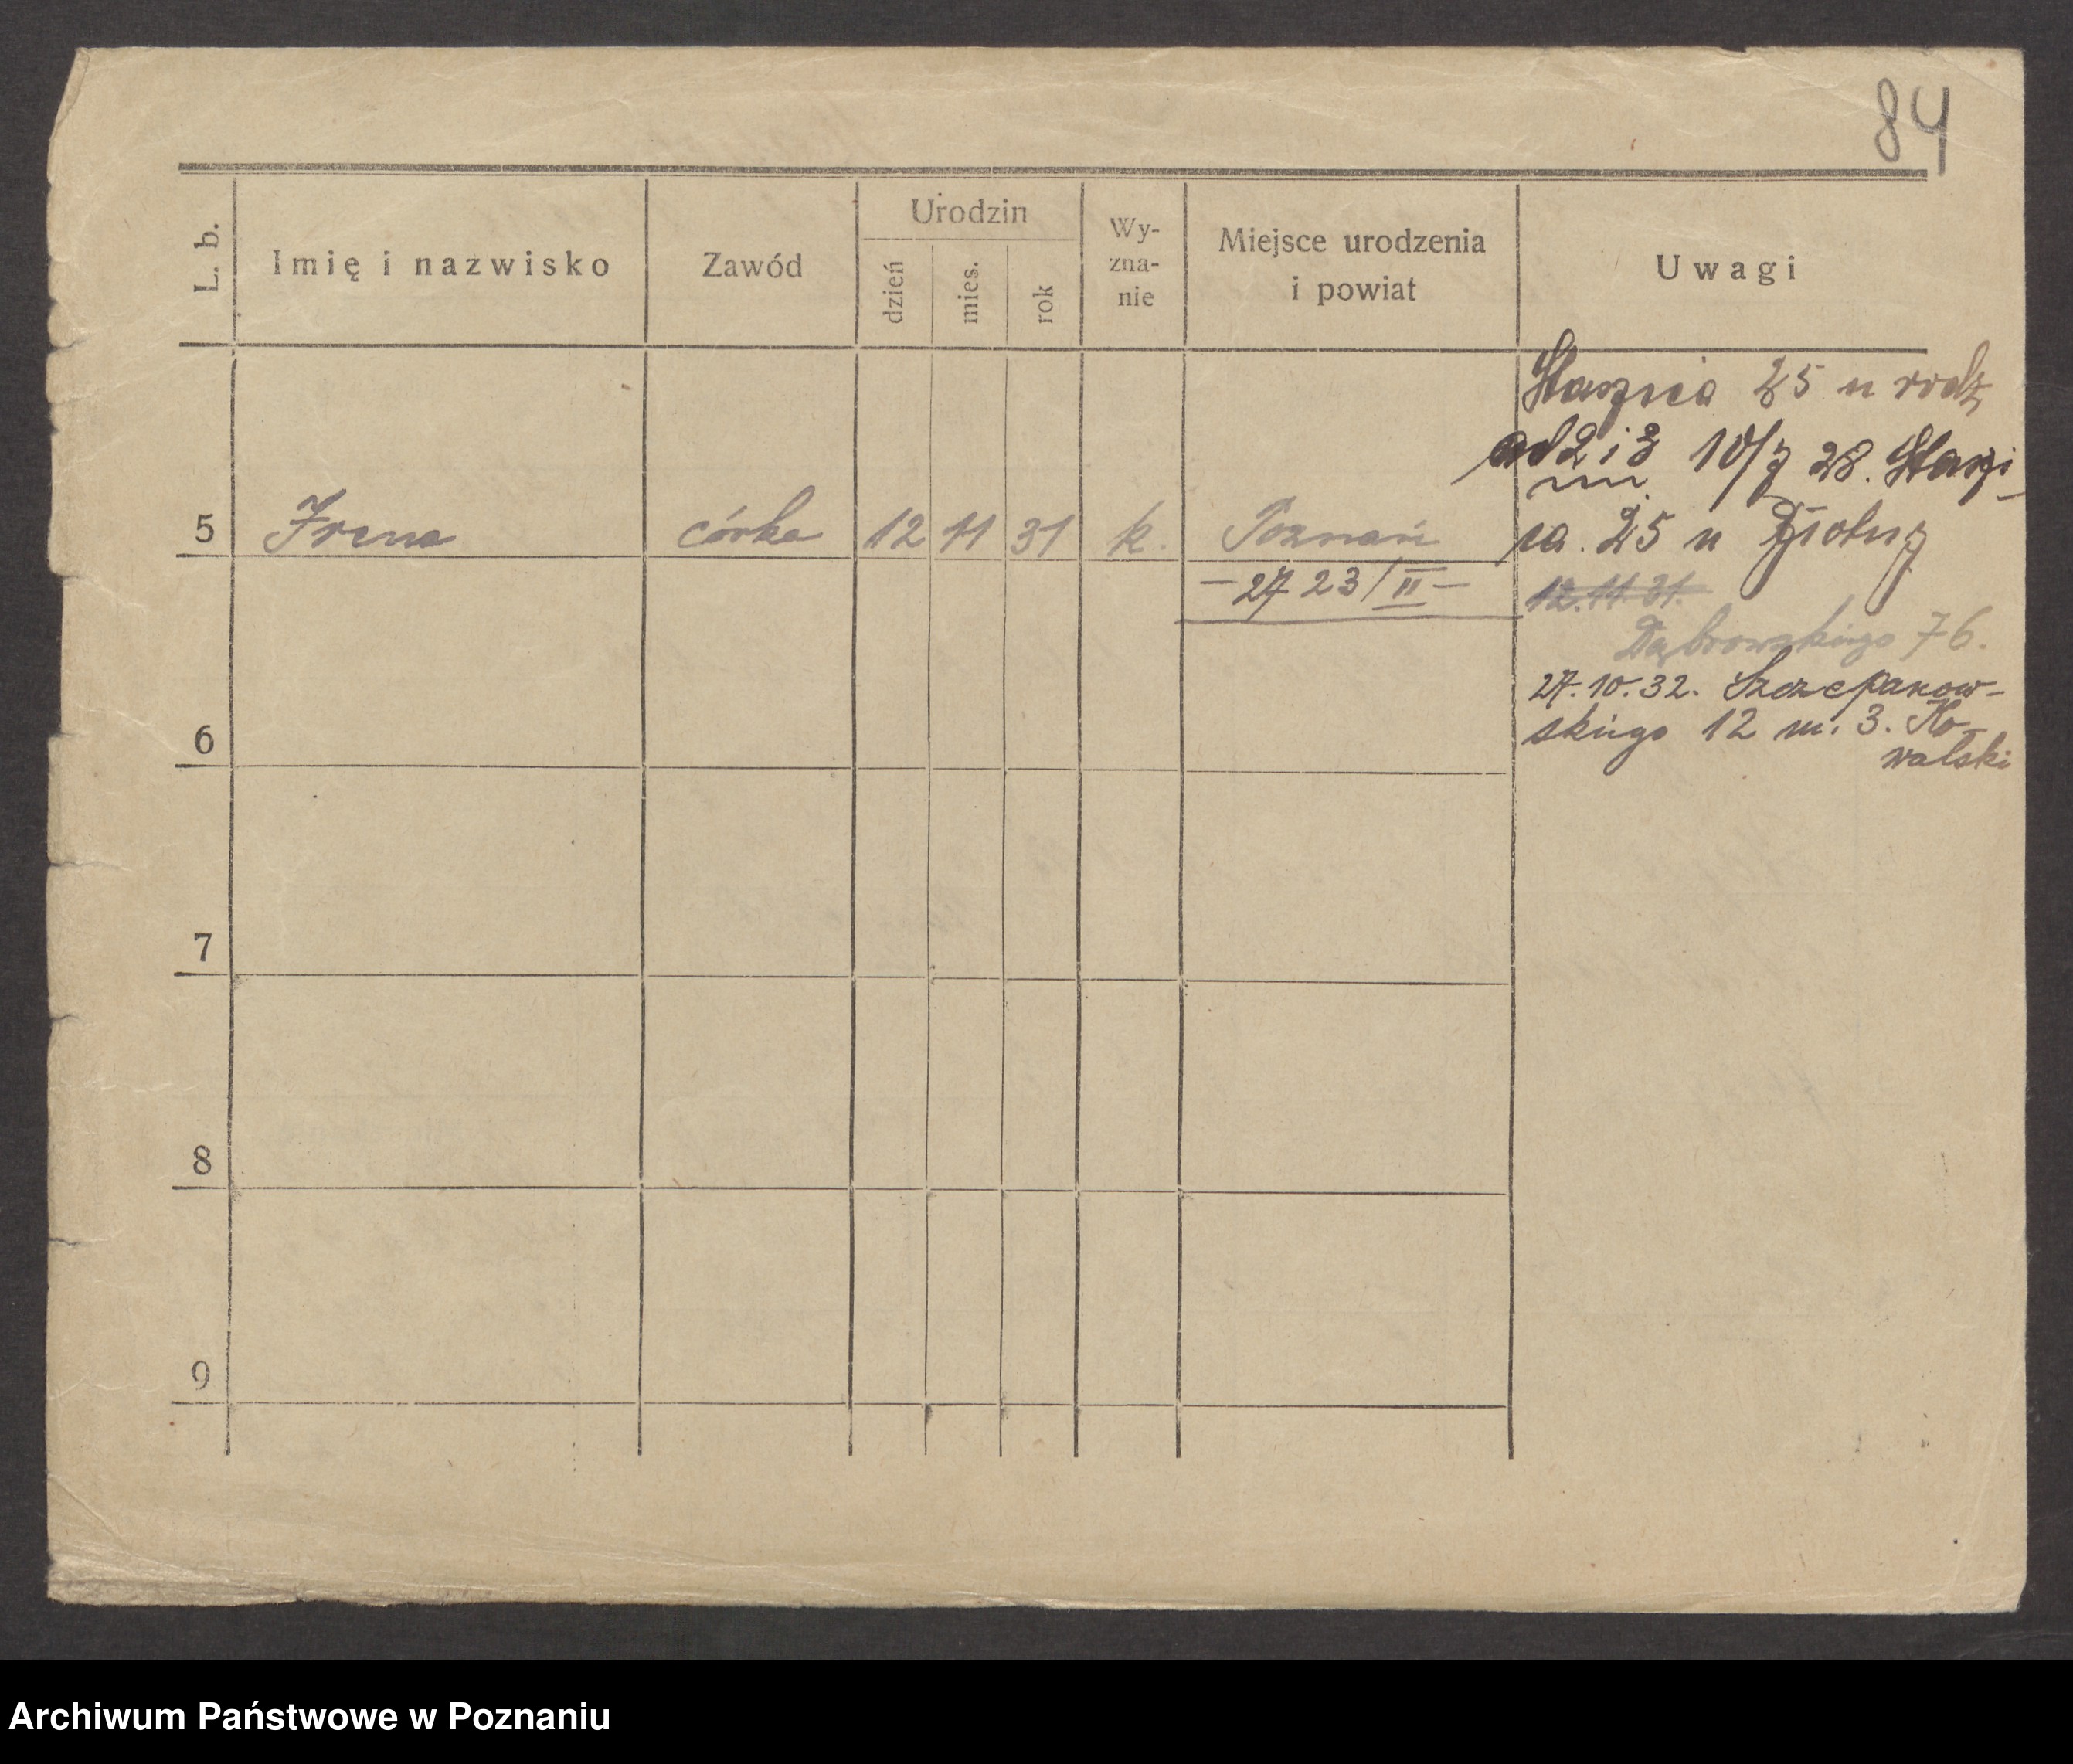 84
L. b.
Imię i nazwisko
Zawód
Urodzin
dzień
mies.
rok
Wy-
zna-
nie
Miejsce urodzenia
i powiat
Uwagi
5 Irena córka 12 11 31 k. Poznań
- 27 23/II -
6
7
8
9
Staszica 25 u rodz
ad 2 i 3 10/7 28. Staszi-
ca. 25 u
12.11.31.
Dąbrowskiego 76.
27.10.32. Szczepanow-
skiego 12 m. 3. Ko-
walski
Archiwum Państwowe w Poznaniu